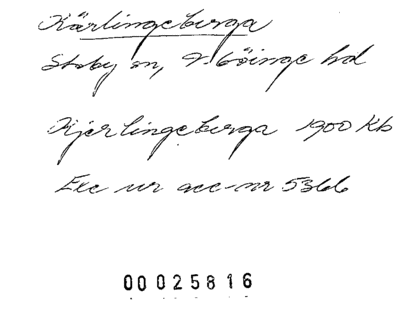 Kärlingeberga
Stoby sn, V. Göinge hd
Kjerlingeberga 1900 Kb
Exc ur acc-nr 5366
00025816